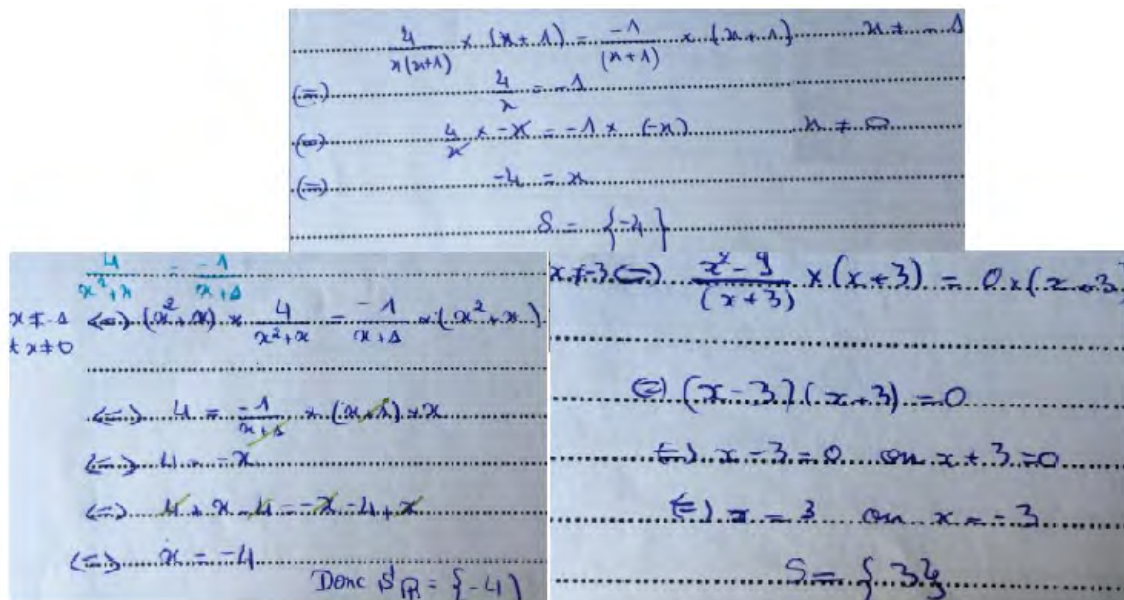 4/(x(x+1)) × (x+1) = -1/(x+1) × (x+1) x ≠ -1
(=) 4/x = -1
(=) 4/x × -x = -1 × (-x) x ≠ 0
(=) -4 = x
S = {-4}
4/(x²+x) = -1/(x+1)
x ≠ -1 <=> (x²+x) × 4/(x²+x) = -1/(x+1) × (x²+x)
t x ≠ 0
<=> 4 = -1/(x+1) × (x+1) × x
<=> 4 = -x
<=> 4 + x - 4 = -x - 4 + x
<=> x = -4
Donc Sℝ = {-4}
x ≠ -3 (=) (x²-9)/(x+3) × (x+3) = 0 × (x+3)
(=) (x-3)(x+3) = 0
(=) x-3 = 0 ou x+3 = 0
(=) x = 3 ou x = -3
S = {3}